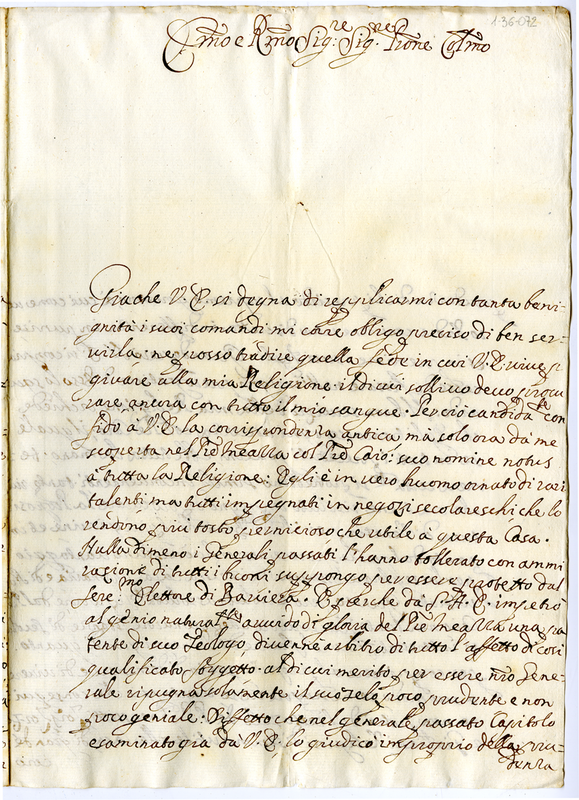 1-36-072
Emo e Rmo Sig:re Sig:re Prone Colmo
Giache V. E. si degna di replicarmi con tanta beni-
gnità i suoi comandi mi corre obligo preciso di ben ser-
virla. ne posso tradire quella fede in cui V. E. vive, di
giovare alla mia Religione: il di cui sollivo devo procu
rare ancora con tutto il mio sangue. Perciò candidate con
fido à V. E. la corrispondenza antica mà solo ora da me
scoperta nel Pre Mearra col Pre Caio: suo nomine notus
à tutta la Religione: Egli è in vero huomo ornato di varÿ
talenti ma tutti impegnati in negozi secolareschi che lo
rendono più tosto pernicioso che utile à questa Casa.
Nulladimeno i Generali passati l'hanno tollerato con ammi
razione di tutti i buoni suppongo per essere protetto dal
Sere:mo Elettore di Baviera. E perche da S. A. E. impetrò
al genio naturalte avvido di gloria del Pre Mearra una pa
tente di suo Teologo, divenne arbitro di tutto l'affetto di così
qualificato soggetto. al di cui merito per essere nro Gene-
rale ripugna solamente il suo zelo poco prudente e non
poco geniale: Diffetto che nel generale passato Capitolo
esaminato già da V. E. lo giudicò improprio della pru-
denza